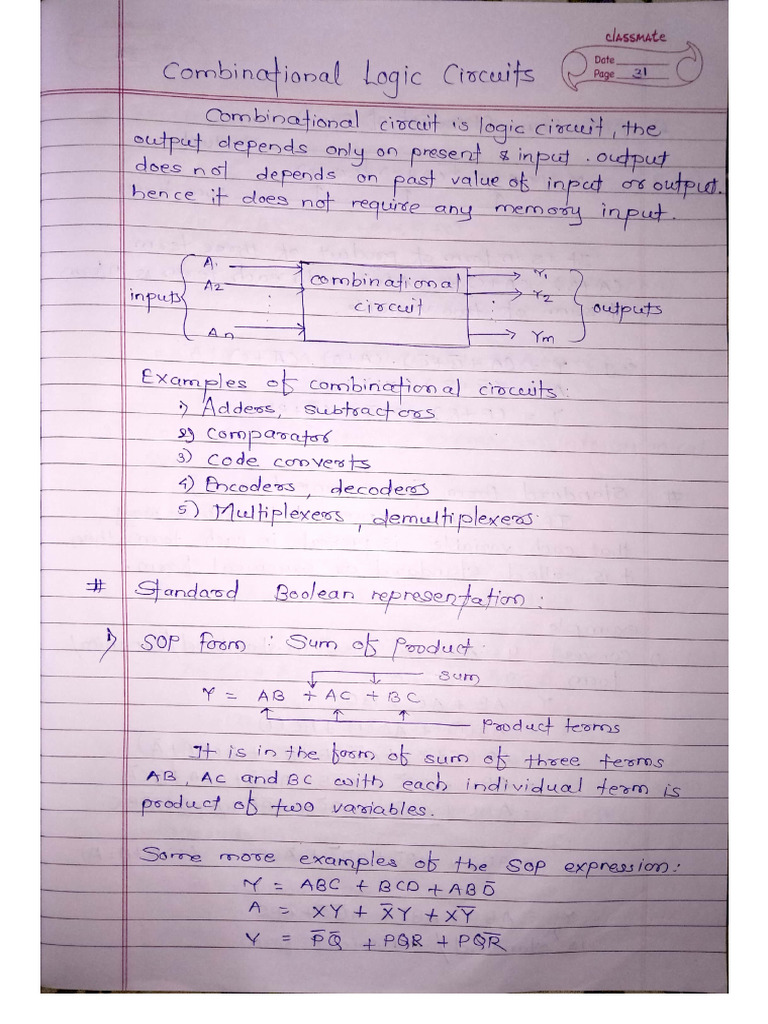 classmate
Date
Page 31
Combinational Logic Circuits
Combinational circuit is logic circuit, the
output depends only on present & input . output
does not depends on past value of input or output.
hence it does not require any memory input.
inputs
A1
A2
An
combinational
circuit
Y1
Y2
Ym
outputs
Examples of combinational circuits:
1) Adders, subtractors
2) comparator
3) code converts
4) Encoders, decoders
5) Multiplexers, demultiplexers.
# Standard Boolean representation:
1) SOP form : Sum of Product.
sum
Y = AB + AC + BC
product terms
It is in the form of sum of three terms
AB, AC and BC with each individual term is
product of two variables.
Some more examples of the SOP expression:
Y = ABC + BCD + ABD̅
A = XY + X̅Y + XY̅
Y = P̅Q̅ + PQR + PQR̅